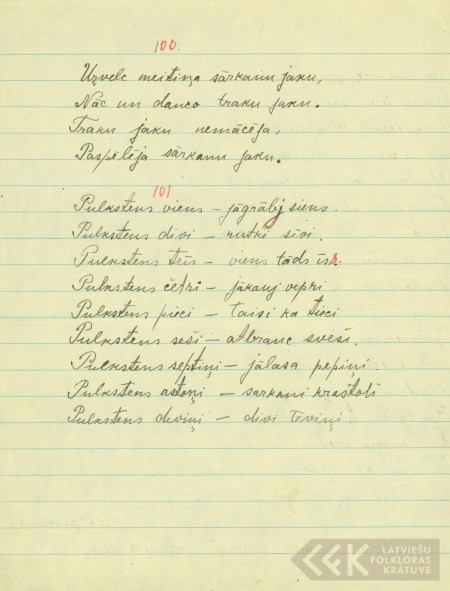 100.
Uzvelc meitiņa sārkanu jaku,
Nāc un danco traku jaku.
Traku jaku nemācēja,
Paspēlēja sārkanu jaku.
101
Pulkstens viens – jāgrābj siens.
Pulkstens divi – rutki sīvi.
Pulkstens trīs – viens tāds īss.
Pulkstens četri – jākauj vepri
Pulkstens pieci – taisi ka tieci
Pulkstens seši – atbrauc sveši.
Pulkstens septiņi – jālasa pepiņi.
Pulkstens astoņi – sarkani krastoņi
Pulkstens deviņi – divi tēviņi.
LATVIEŠU
FOLKLORAS
KRĀTUVE